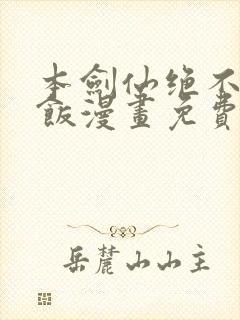 本劍仙绝不
飯漫畫免費
岳麓山山主